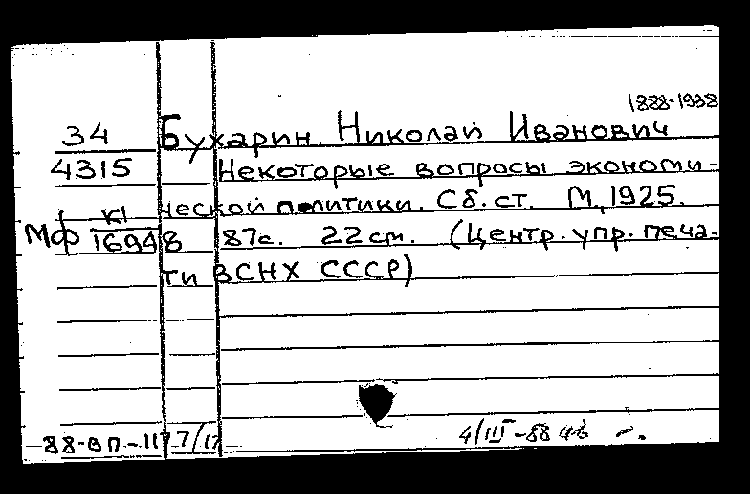 1888-1938
34 Бухарин Николай Иванович
4315 Некоторые вопросы экономи-
ческой политики. Сб. ст. М, 1925.
МФ К1/16948 87с. 22 см. (Центр. упр. печа-
ти ВСНХ СССР)
88-ВП-1177/17 4/III-88